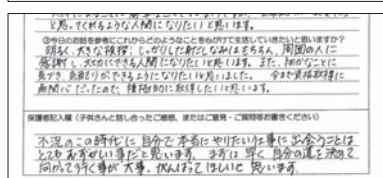 と思ってくれるような人間になりたいと思います。
③今日のお話を参考にこれからどのようなことを心がけて生活していきたいと思いますか?
明るく、大きな挨拶!しっかりした身だしなみはもちろん、周囲の人に
感謝し、大切にできる人間になりたいと思います。また、細かなことに
気づき、気配りができるようになりたいと思いました。今まで資格取得に
無関心だったので、積極的に取得したいと思います。
保護者記入欄(子供さんと話し合ったご感想、またはご意見・ご質問等お書きください)
不況のこの時代に自分で本当にやりたい仕事に出会うことは
とてもむずかしい事だと思います。まずは早く自分の道を決めて
向かって行く事が大事、がんばってほしいと思います。